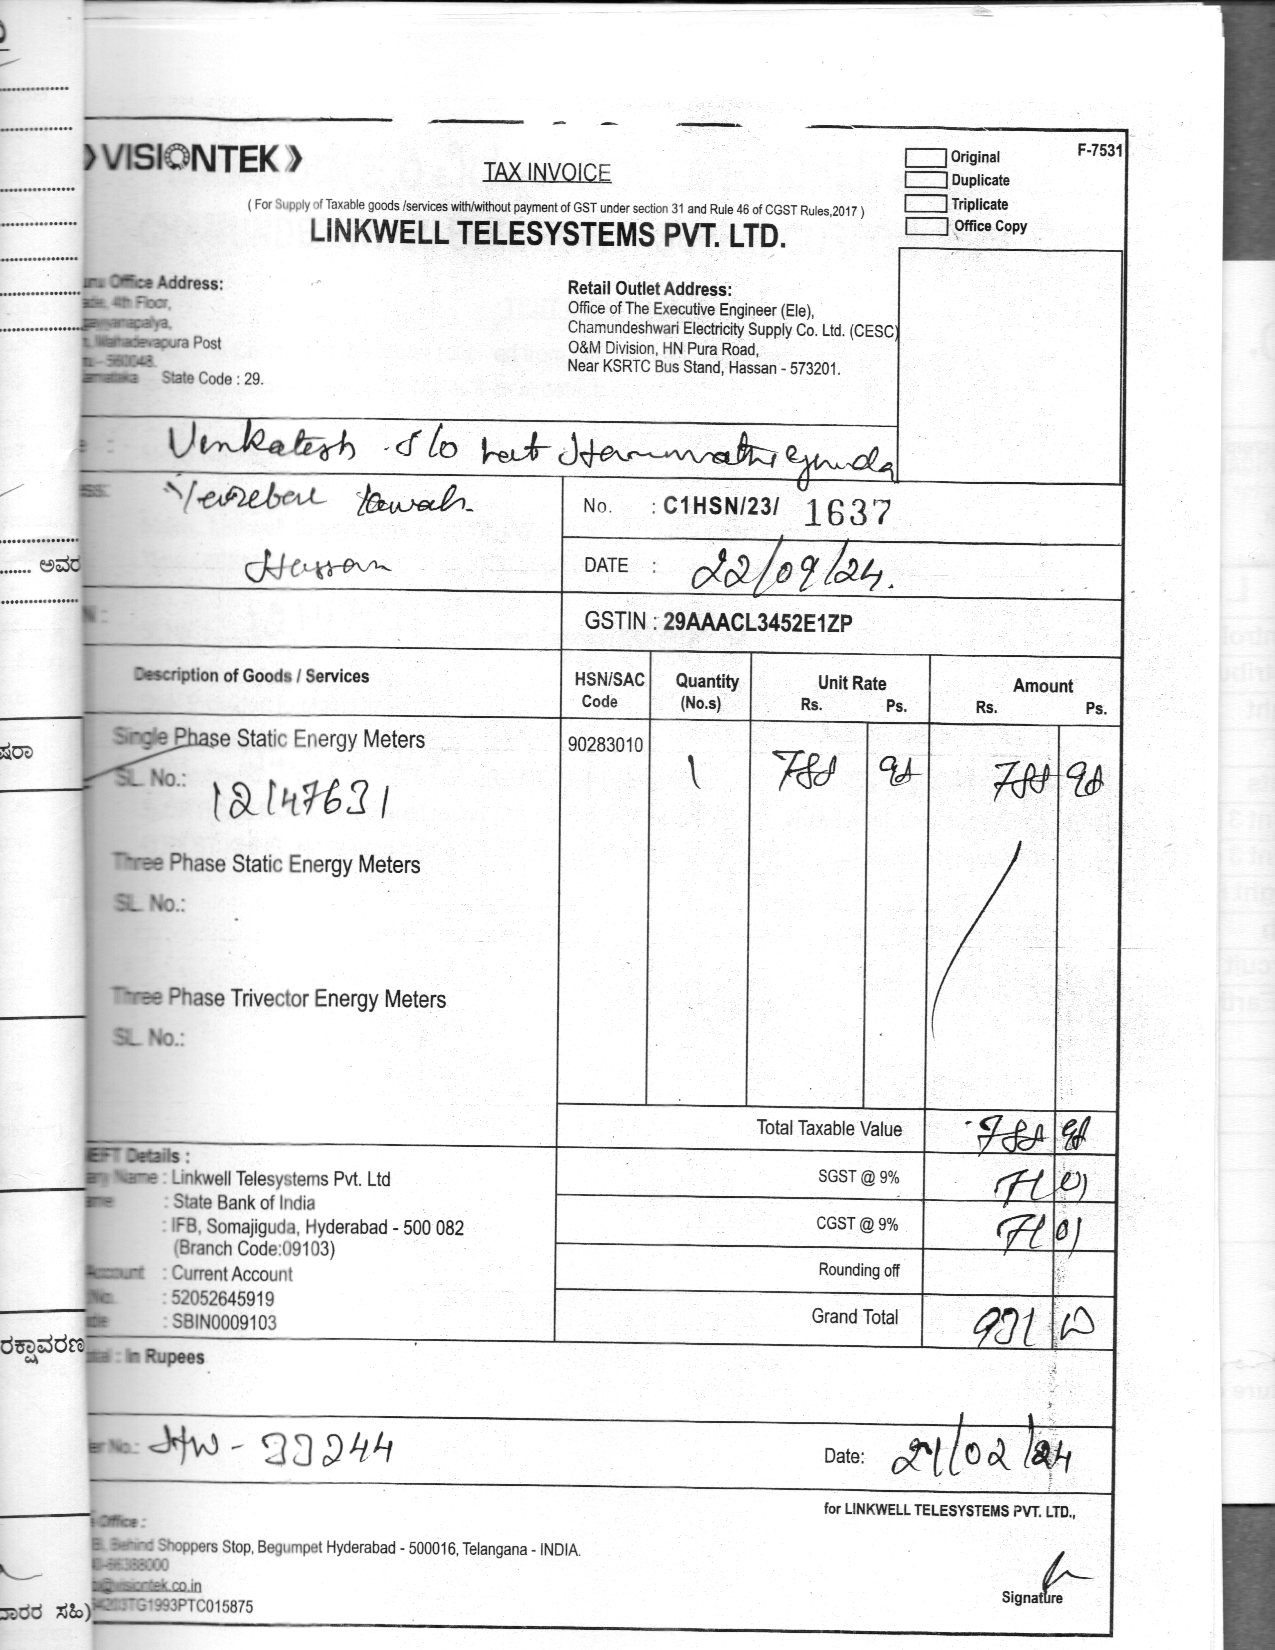 VISIONTEK
TAX INVOICE
Original
F-7531
Duplicate
Triplicate
Office Copy
( For Supply of Taxable goods /services with/without payment of GST under section 31 and Rule 46 of CGST Rules,2017 )
LINKWELL TELESYSTEMS PVT. LTD.
Office Address:
4th Floor,
Mahadevapura Post
- 560048.
State Code : 29.
Retail Outlet Address:
Office of The Executive Engineer (Ele),
Chamundeshwari Electricity Supply Co. Ltd. (CESC)
O&M Division, HN Pura Road,
Near KSRTC Bus Stand, Hassan - 573201.
Venkatesh S/o
Hassan
No. : C1HSN/23/ 1637
DATE : 22/09/24.
GSTIN : 29AAACL3452E1ZP
Description of Goods / Services
HSN/SAC Code
Quantity (No.s)
Unit Rate Rs. Ps.
Amount Rs. Ps.
Single Phase Static Energy Meters 90283010 1
SL. No.: 12147631
Three Phase Static Energy Meters
SL. No.:
Three Phase Trivector Energy Meters
SL. No.:
Total Taxable Value
SGST @ 9% 71 01
CGST @ 9% 71 01
Rounding off
Grand Total 931
Details :
Name : Linkwell Telesystems Pvt. Ltd
: State Bank of India
: IFB, Somajiguda, Hyderabad - 500 082
(Branch Code:09103)
Account : Current Account
: 52052645919
: SBIN0009103
: In Rupees
No.: HW - 33244
Date: 21/02/24
for LINKWELL TELESYSTEMS PVT. LTD.,
Office :
Behind Shoppers Stop, Begumpet Hyderabad - 500016, Telangana - INDIA.
66388000
visiontek.co.in
TG1993PTC015875
Signature
ಅವರ
ರಕ್ಷಾವರಣ
ಸಹಿ)